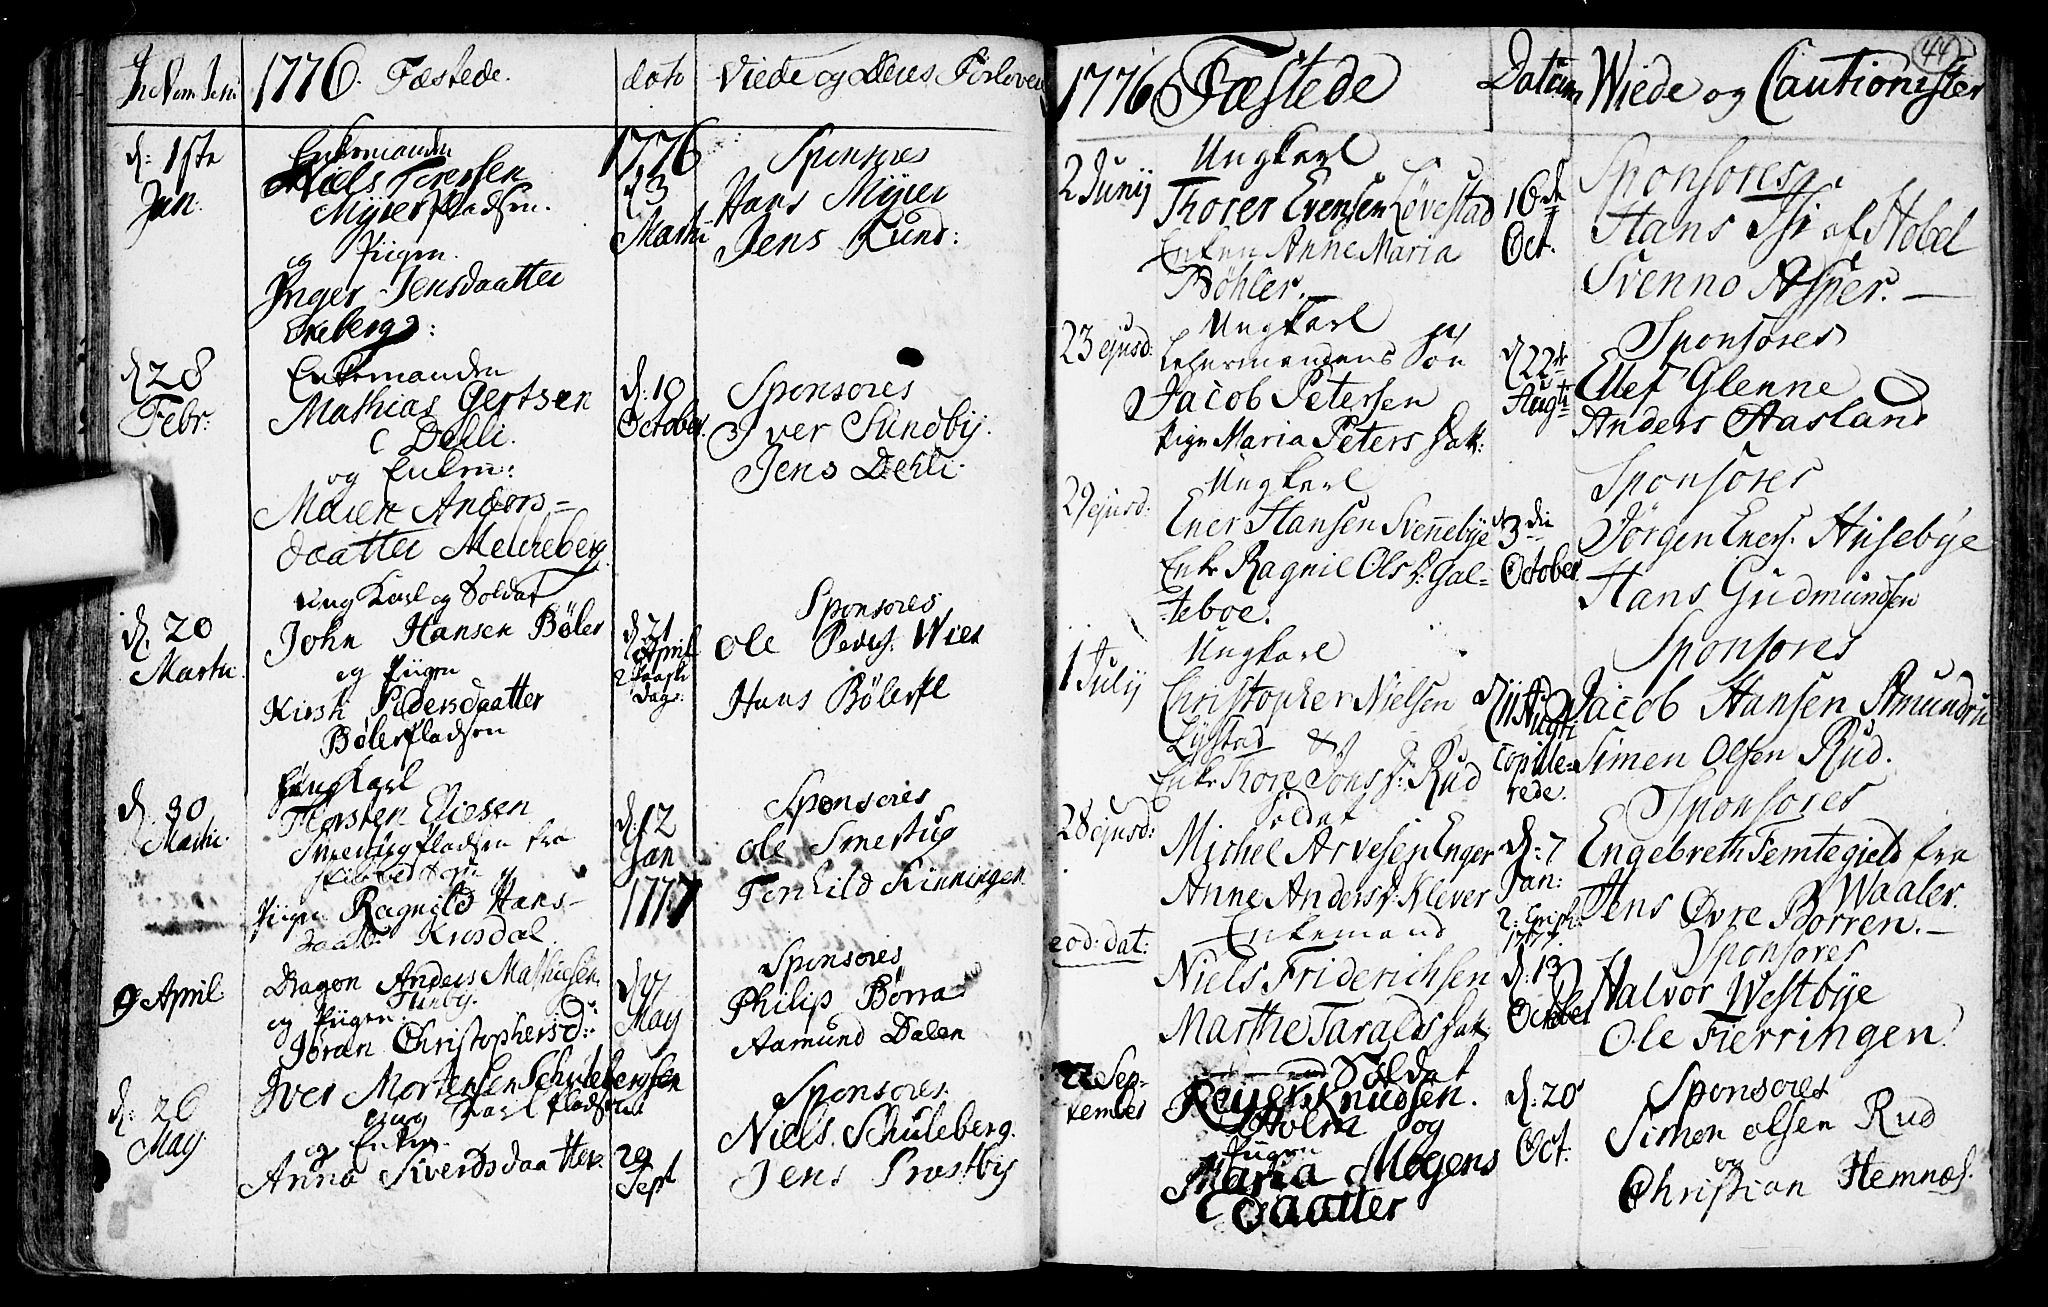 In Nom: Jesu
1776. Fæstede.
dato
Viede og Deres Forlovere
d: 1ste
Jun:
Enkemanden
Niels Torersen
Myrer pladsen.
og Piigen
Inger Jensdaatter
Ekeberg:
1776
d 3
Martii
Sponsores
Hans Myrer
Jens Lund:
d 28
Febr:
Enkemanden
Mathias Gertsen
Dehli.
og Enken:
Maren Anders=
daatter Melcheberg.
d: 10
October
Sponsores
Iver Sundbij.
Jens Dehli.
d. 20
Martii
ung Karl og Soldat
John Hansen Böler
og Piigen
Kirsti Pedersdaatter
Böler pladsen
d 21
April
2 Paaske
Dag:
Sponsores
Ole Peders: Wies
Hans Bölerst
d. 30
Martii
Ung Karl
Thorsten Eliesen
Smertug pladsen fra
Piigen Ragnild Hans-
daatt: Krosdal
d: 12
Jan
1777
Sponsores
Ole Smertug
Terkild Kinningen
9 April
Dragon Anders Mathiesen
og Piigen
Jöran Christophersd:
May
Sponsores
Philip Börra
Aamund Dalen
d: 26
May
Iver Mortensen Schulebergsen
ung Karl pladsen
og Enken
Anna Siverdsdaatter
29
Sept
Sponsores
Niels Schuleberg.
Jens Prostbij
44
1776 Fæstede
Datum
Wiede og Cautionister
2 Junij
Ungkarl
Thorer Evensen Lövestad
Enken Anne Maria
Böhler.
16de
Oct.
Sponsores
Hans Ihr af Hobel
Svenno Asper.
23 ejusd:
Ungkarl
Jacob Petersen
Pige Maria Peters datt:
d 22de
Augti
Sponsores
Ellef Glenne
Anders Aasland
29 ejusd:
Ungkarl
Ener Hansen Svennebije
Enke Ragnil Ols d: Gal=
=teboe.
3die
October
Sponsores
Jörgen Eners. Husebije
Hans Gudmundsen
1 Julij
Ungkarl
Christopher Nielsen
Lystad &
Enke Thore Jons d: Rud
d 11 Augti
copule=
rede.
Sponsores
Jacob Hansen Amundru
Simen Olsen Rud.
28 ejusd:
Soldat
Michel Arvesen Enger
Anne Anders d. Klever
d: 7
Jan:
2: Epiph:
1777
Sponsores
Engebreth Femtegield fra
Waaler.
Jens Övre Borren.
eod: dat:
Enkemand
Niels Friderichsen
Marthe Taralds datt
d: 13
October
Sponsores
Halvor Westbije
Ole Fierringen
22 Sep-
tember
Soldat
Reier Knudsen.
Holm og
Piigen
Maria Mogens
Daatter
d: 20
Oct:
Sponsores
Simen olsen Rud
og
Christian Hemnes.